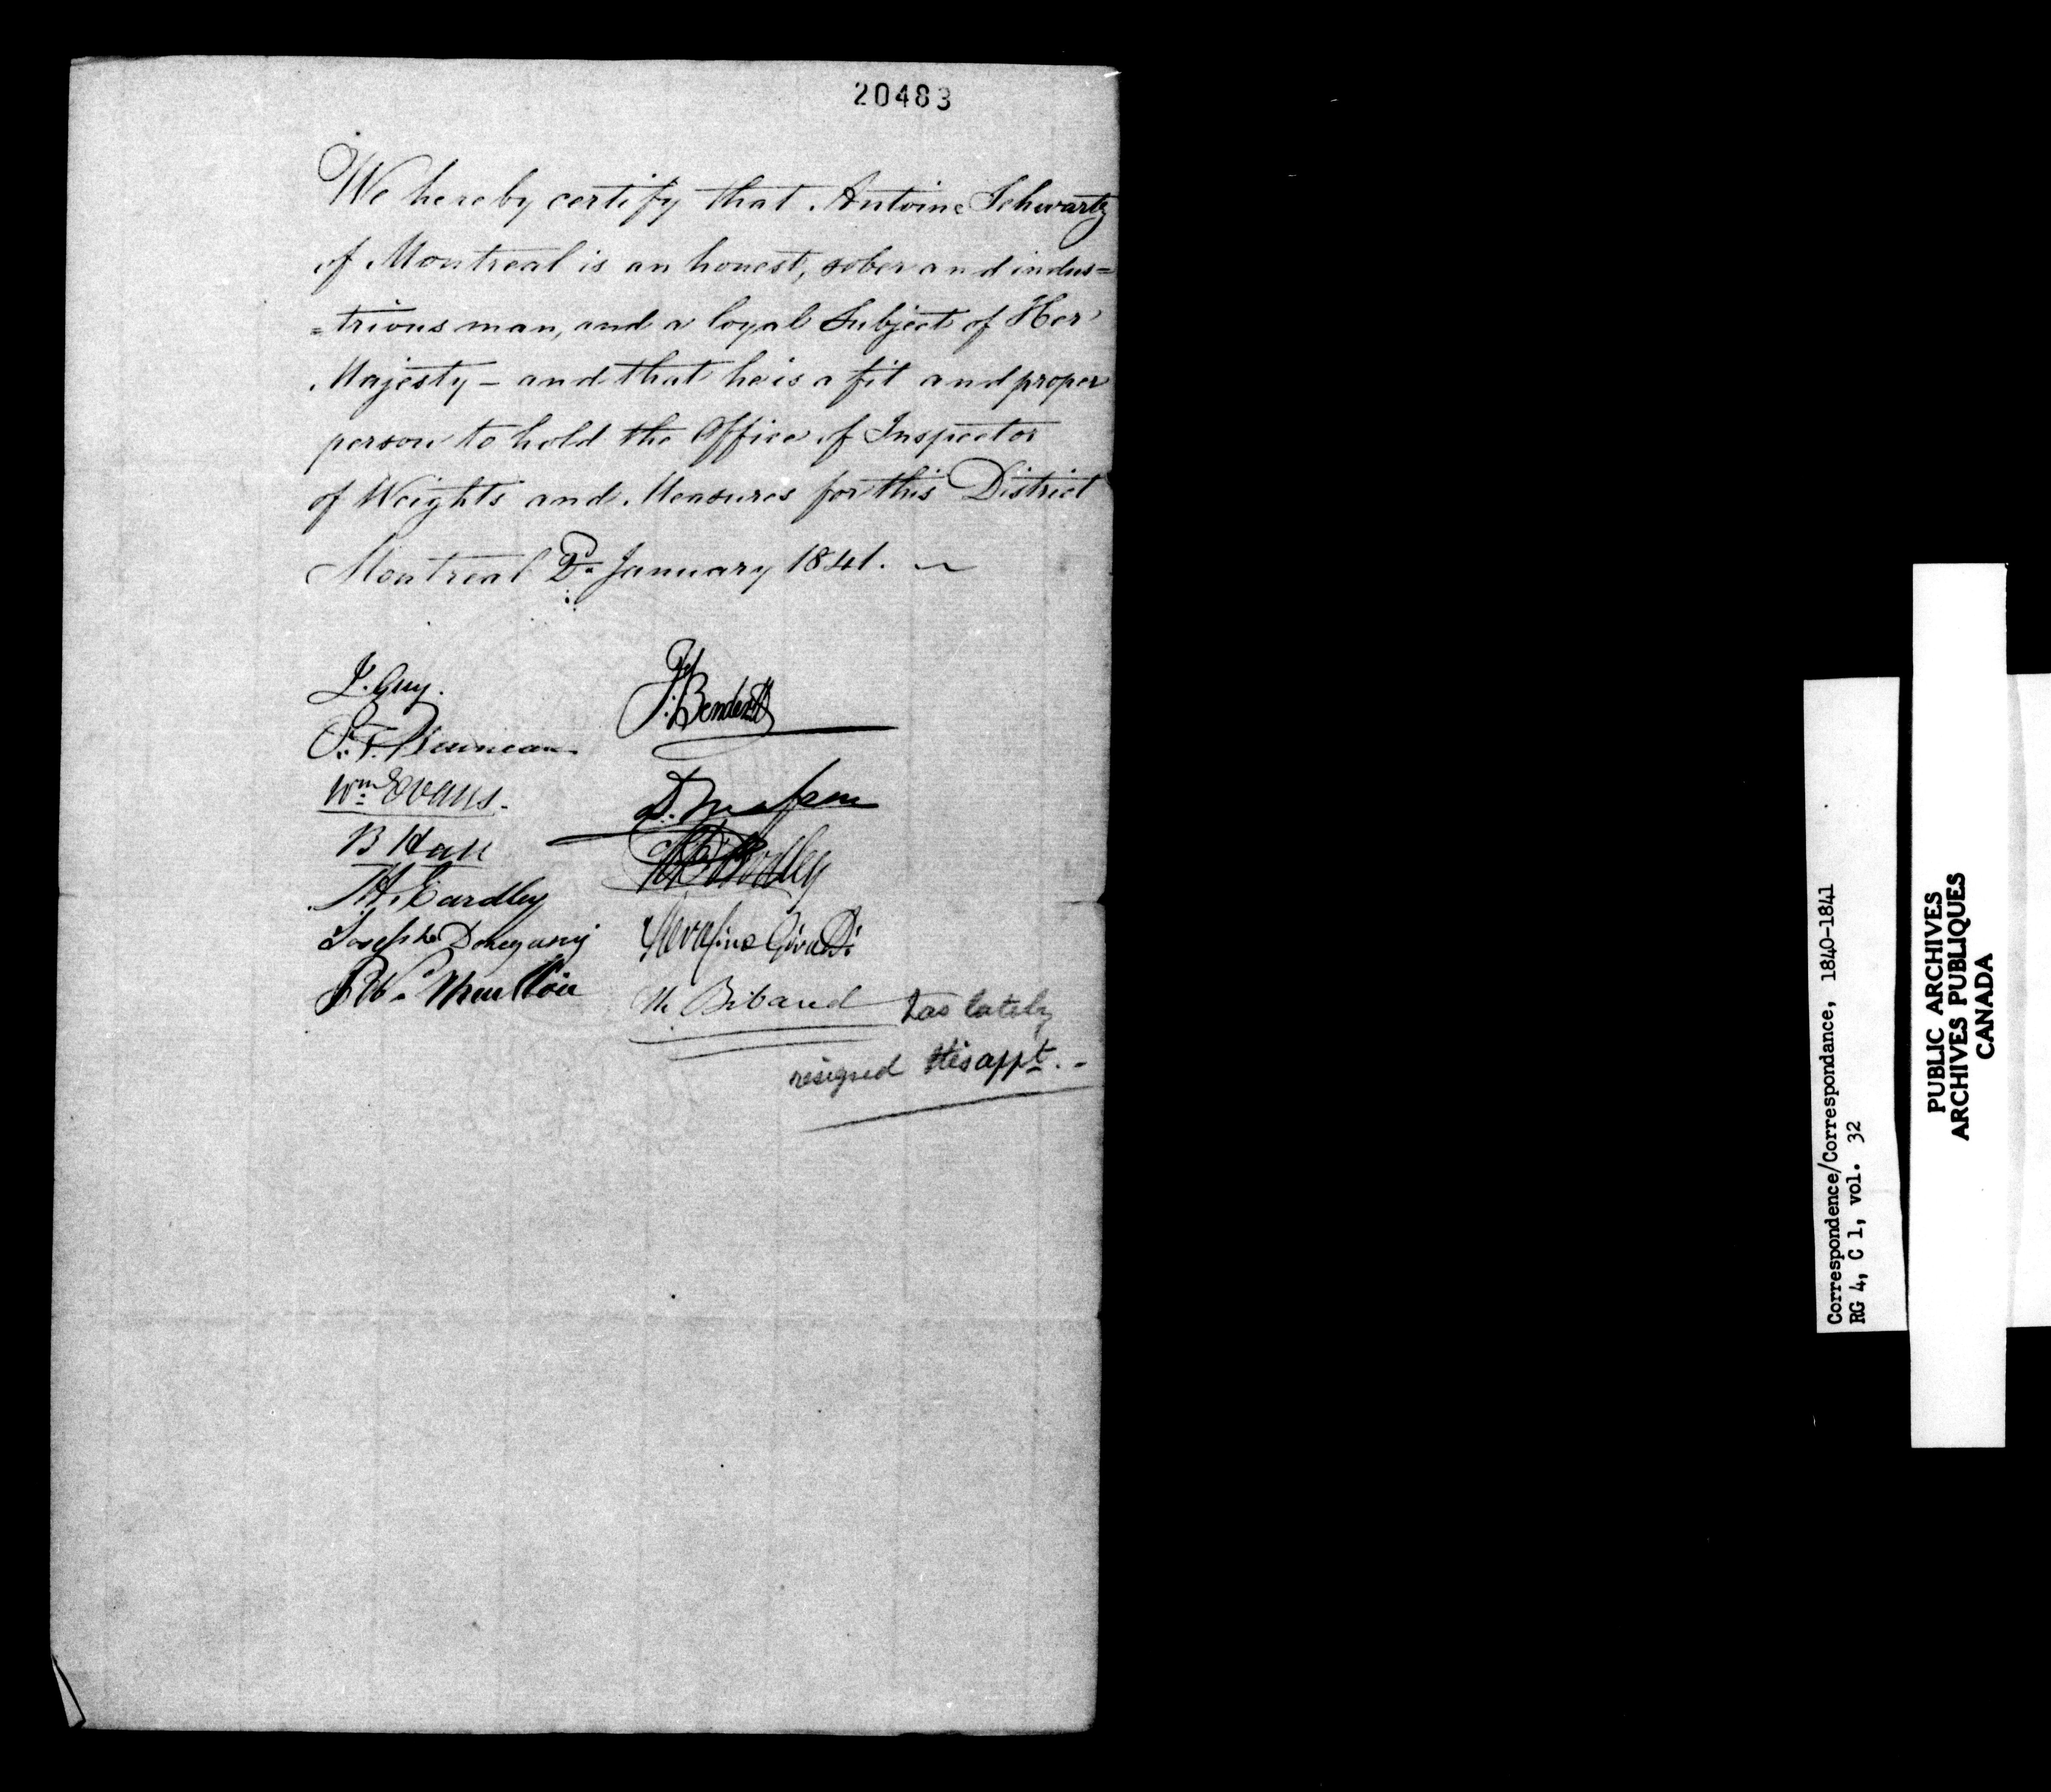 20483
We hereby certify that Antoine Schwartz
of Montreal is an honest, sober and indus=
=trious man, and a loyal Subject of Her
Majesty – and that he is a fit and proper
person to hold the Office of Inspector
of Weights and Measures for this District
Montreal January 1841.
L. Guy.
Wm Evans.
B Hall
H. Eardley
Joseph Donegany
F. Bender
Serafino Giraldi
M. Bibaud has lately
resigned His appt. -
Correspondence/Correspondance, 1840-1841
RG 4, C 1, vol. 32
PUBLIC ARCHIVES
ARCHIVES PUBLIQUES
CANADA